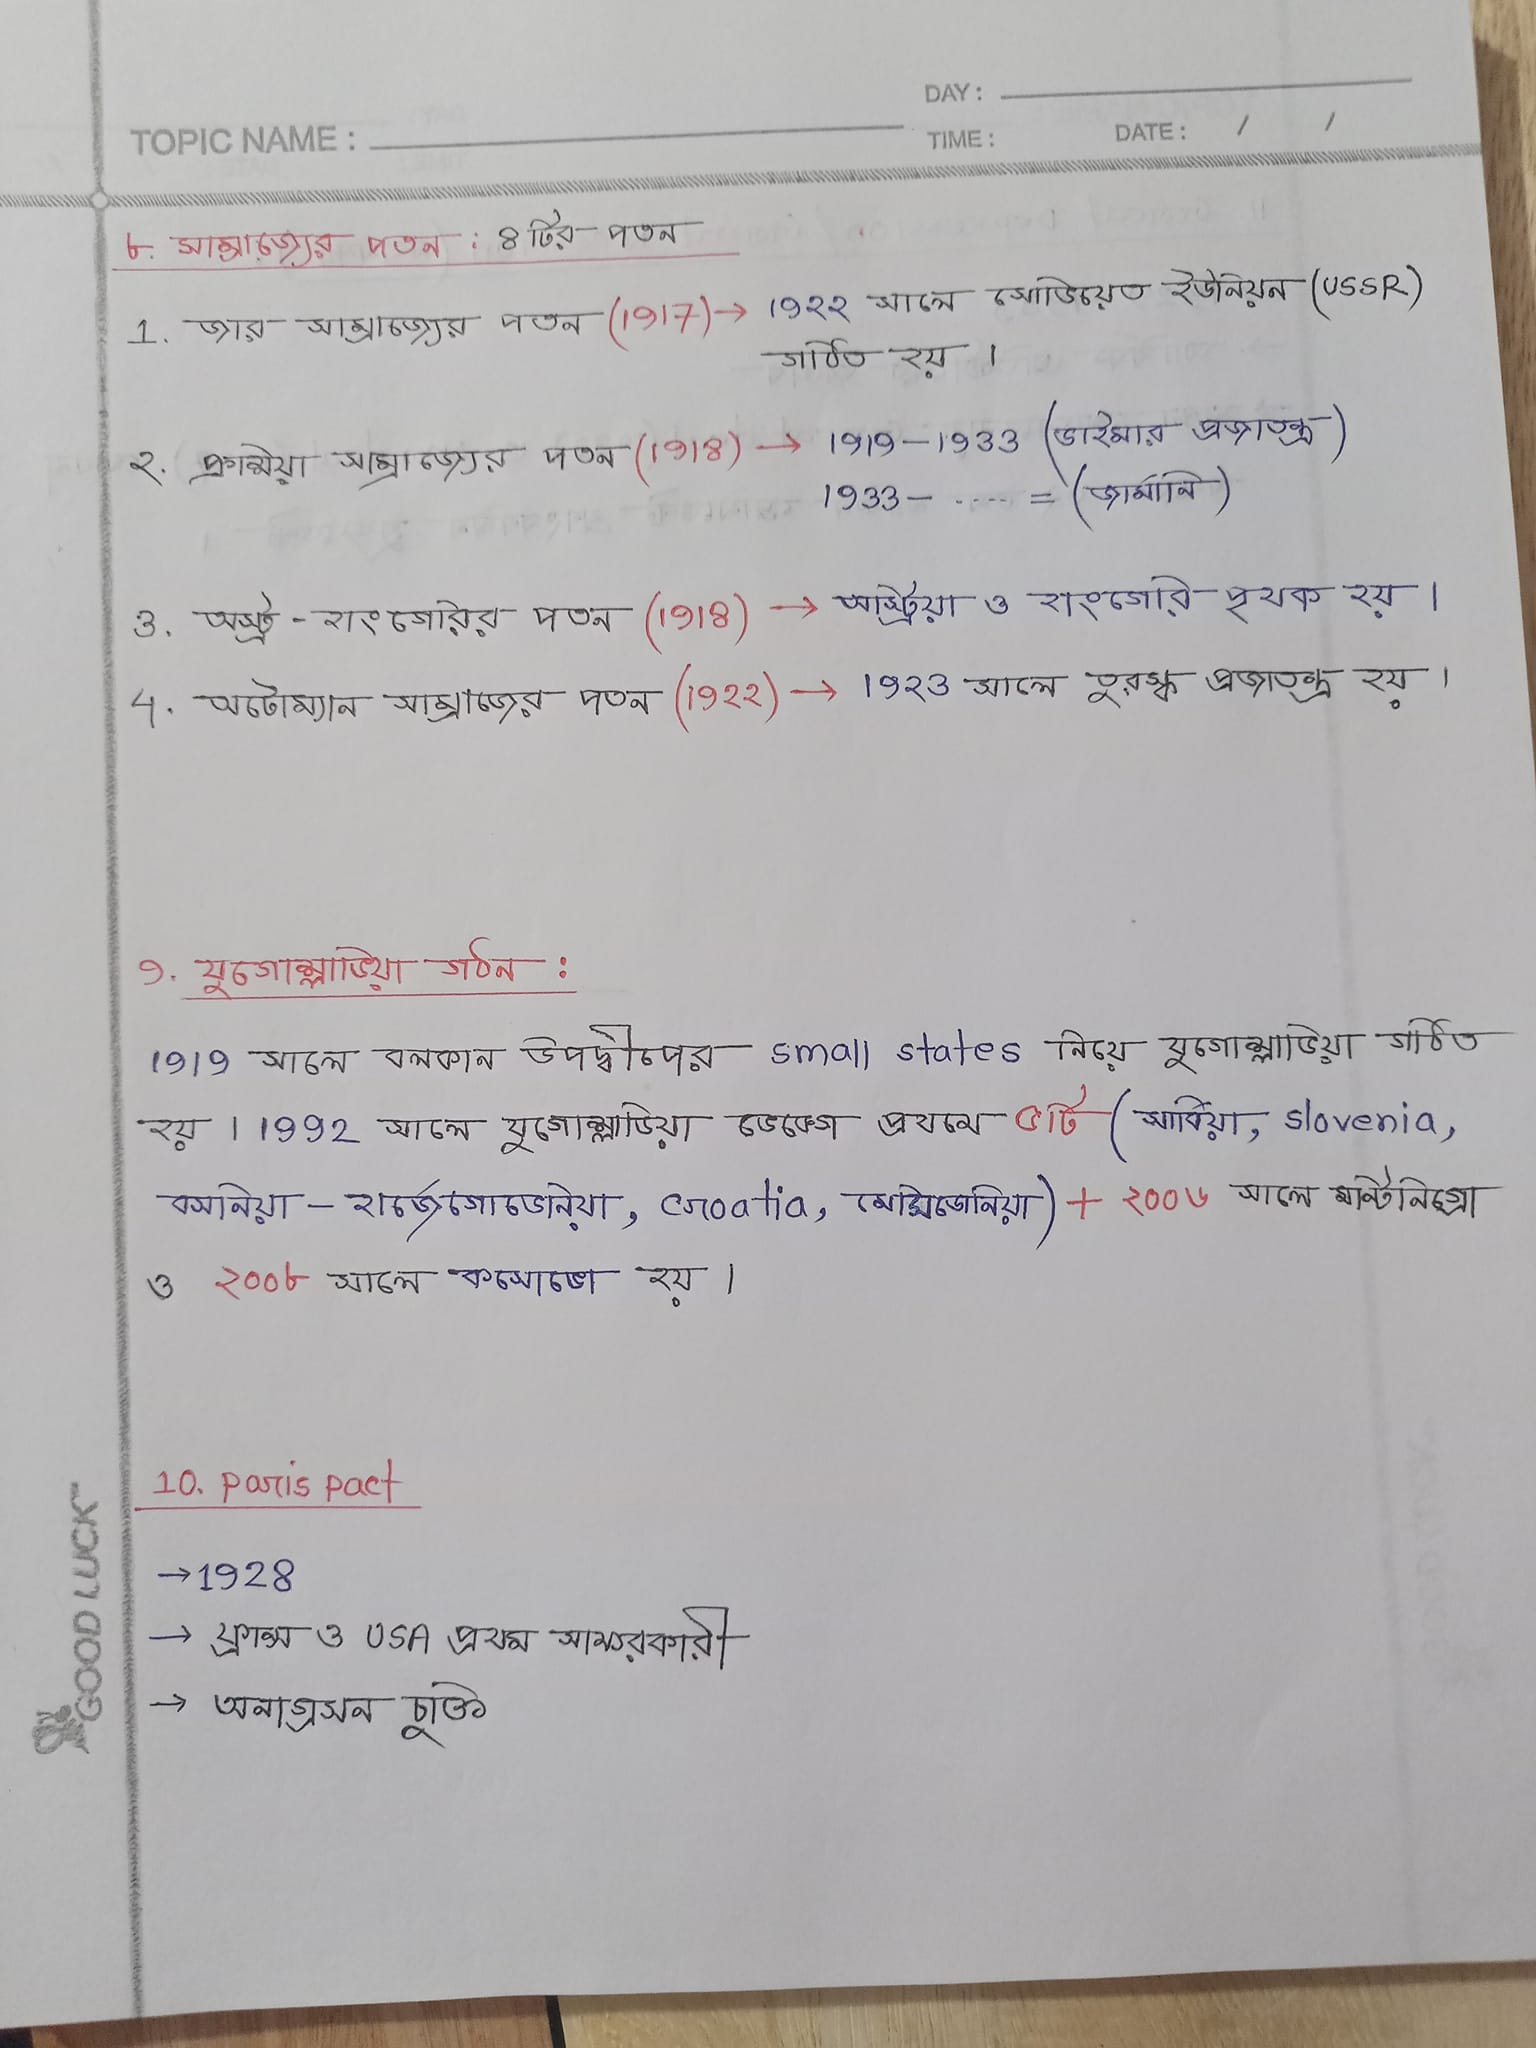 DAY :
TOPIC NAME :
TIME : DATE : / /
৮. সাম্রাজ্যের পতন : ৪টির পতন
1. জার সাম্রাজ্যের পতন (1917) → 1৯২২ সালে সোভিয়েত ইউনিয়ন (USSR)
গঠিত হয় ।
২. প্রুশিয়া সাম্রাজ্যের পতন (1918) → 1919-1933 (ভাইমার প্রজাতন্ত্র)
1933 - ..... = (জার্মানি)
3. অস্ট্র - হাংগেরির পতন (1918) → অস্ট্রিয়া ও হাংগেরি পৃথক হয় ।
4. অটোম্যান সাম্রাজ্যের পতন (1৯২২) → 1৯২3 সালে তুরস্ক প্রজাতন্ত্র হয় ।
9. যুগোশ্লাভিয়া গঠন :
1919 সালে বলকান উপদ্বীপের small states নিয়ে যুগোশ্লাভিয়া গঠিত
হয় । 1992 সালে যুগোশ্লাভিয়া ভেঙ্গে প্রথমে ৫টি (সার্বিয়া, slovenia,
বসনিয়া - হার্জেগোভেনিয়া, croatia, মেসিডোনিয়া) + ২০০৬ সালে মন্টিনিগ্রো
ও ২০০৮ সালে কসোভো হয় ।
10. paris pact
→ 1928
→ ফ্রান্স ও USA প্রথম সাক্ষরকারী
→ অনাগ্রসন চুক্তি
GOOD LUCK™